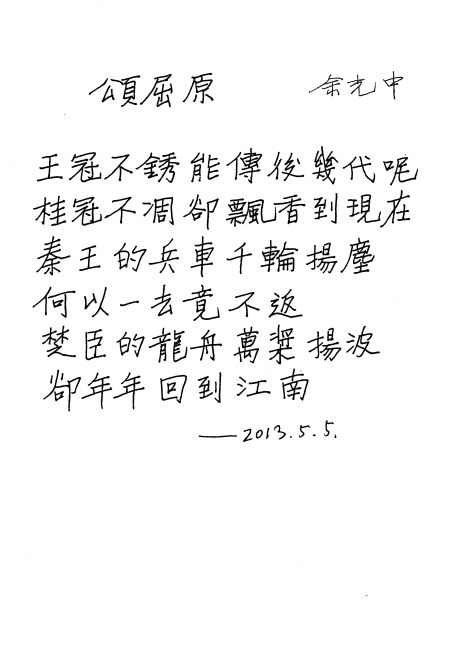 頌屈原 余光中
王冠不銹能傳後幾代呢
桂冠不凋卻飄香到現在
秦王的兵車千輪揚塵
何以一去竟不返
楚臣的龍舟萬槳揚波
卻年年回到江南
——2013.5.5.